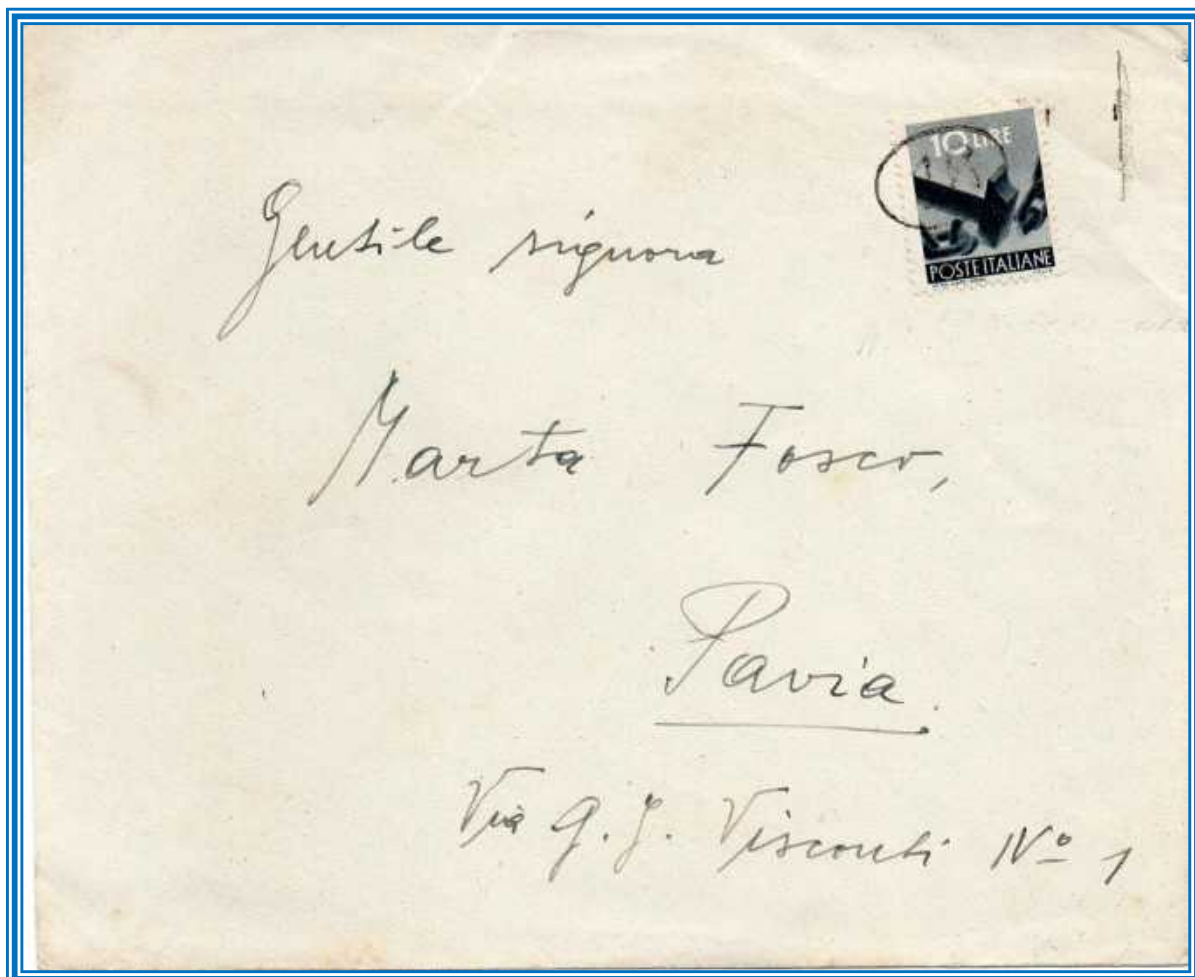 10 LIRE
POSTE ITALIANE
Gentile signora
Marta Fosco,
Pavia.
Via G. G. Visconti Nº 1